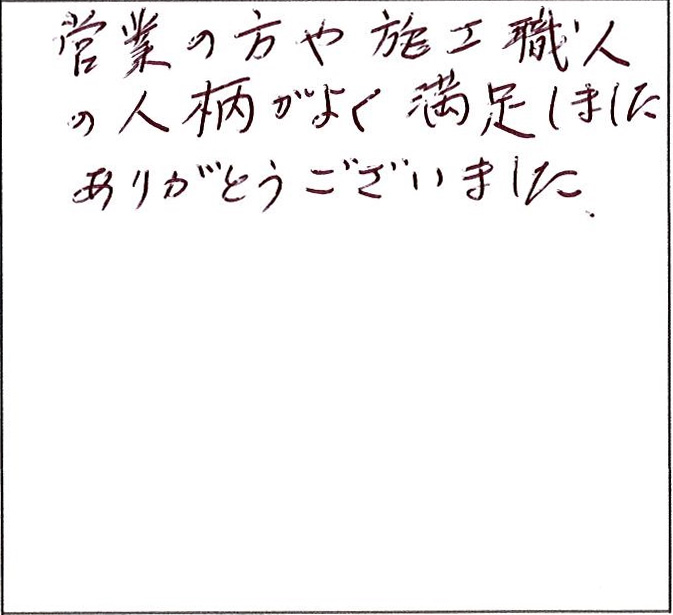 営業の方や施工職人
の人柄がよく満足しました
ありがとうございました.